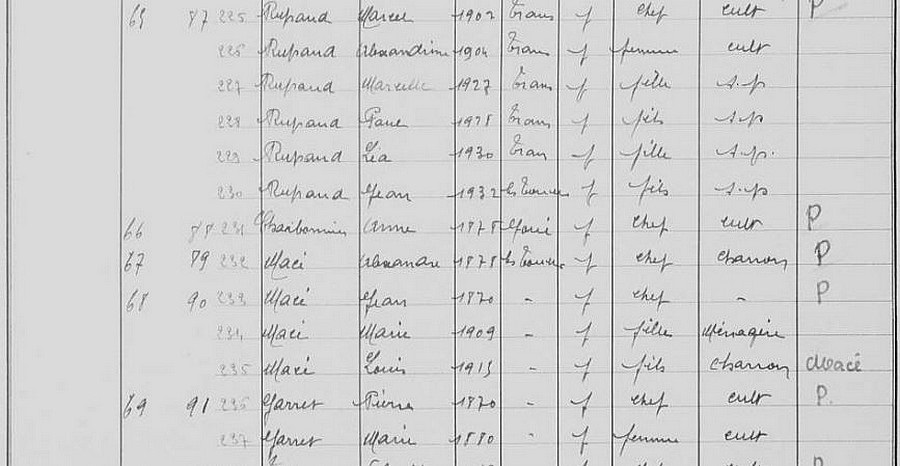 65 87 225 Rupaud Marcel 1902 Trans f chef cult P
226 Rupaud Alexandrine 1904 Trans f femme cult
227 Rupaud Marcelle 1927 Trans f fille s.p
228 Rupaud Paul 1928 Trans f fils s.p
229 Rupaud Léa 1930 Tran f fille s.p.
230 Rupaud Jean 1932 f fils s.p
66 88 231 Charbonnier Anne 1878 f chef cult P
67 89 232 Macé Alexandre 1878 f chef charron P
68 90 233 Macé Jean 1870 - f chef - P
234 Macé Marie 1909 - f fille Ménagère
235 Macé Louis 1913 - f fils charron Macé
69 91 236 Garret Pierre 1870 - f chef cult P.
237 Garret Marie 1880 - f femme cult